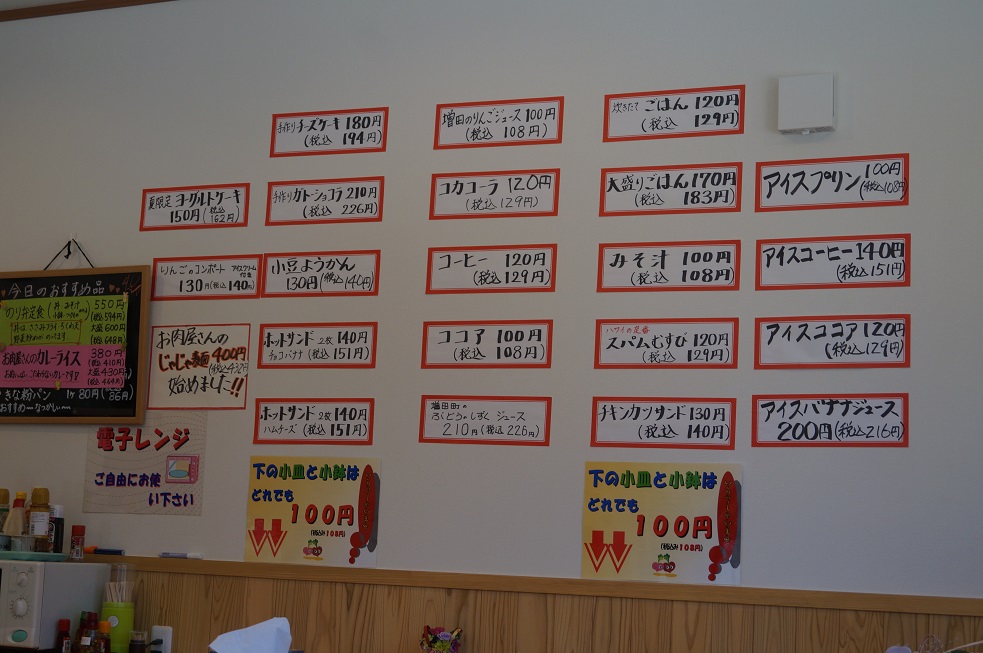 手作りチーズケーキ 180円
(税込 194円)
増田のりんごジュース 100円
(税込 108円)
炊きたて ごはん 120円
(税込 129円)
夏限定 ヨーグルトケーキ
150円(税込162円)
手作りガトーショコラ 210円
(税込 226円)
コカコーラ 120円
(税込 129円)
大盛りごはん 170円
(税込 183円)
アイスプリン 100円
(税込108円)
りんごのコンポート アイスクリーム
130円(税込140円)
小豆ようかん
130円(税込140円)
コーヒー 120円
(税込 129円)
みそ汁 100円
(税込 108円)
アイスコーヒー 140円
(税込151円)
お肉屋さんの
じゃじゃ麺 400円
(税込432円)
始めました!!
ホットサンド 2枚 140円
チョコバナナ (税込 151円)
ココア 100円
(税込 108円)
ハワイの定番
スパムむすび 120円
(税込 129円)
アイスココア 120円
(税込129円)
ホットサンド 2枚 140円
ハムチーズ (税込 151円)
増田町の
ぶどうのしずく ジュース
210円(税込 226円)
チキンカツサンド 130円
(税込 140円)
アイスバナナジュース
200円(税込216円)
今日のおすすめ品
のり弁定食
550円
(税込594円)
大盛 600円
(税込648円)
お肉屋さんのカレーライス 380円
(税込410円)
大盛 430円
(税込464円)
きな粉パン 1ケ 80円(税込86円)
おすすめーなつかしい〜
電子レンジ
ご自由にお使
い下さい
下の小皿と小鉢は
どれでも
100円
(税込み108円)
下の小皿と小鉢は
どれでも
100円
(税込み108円)